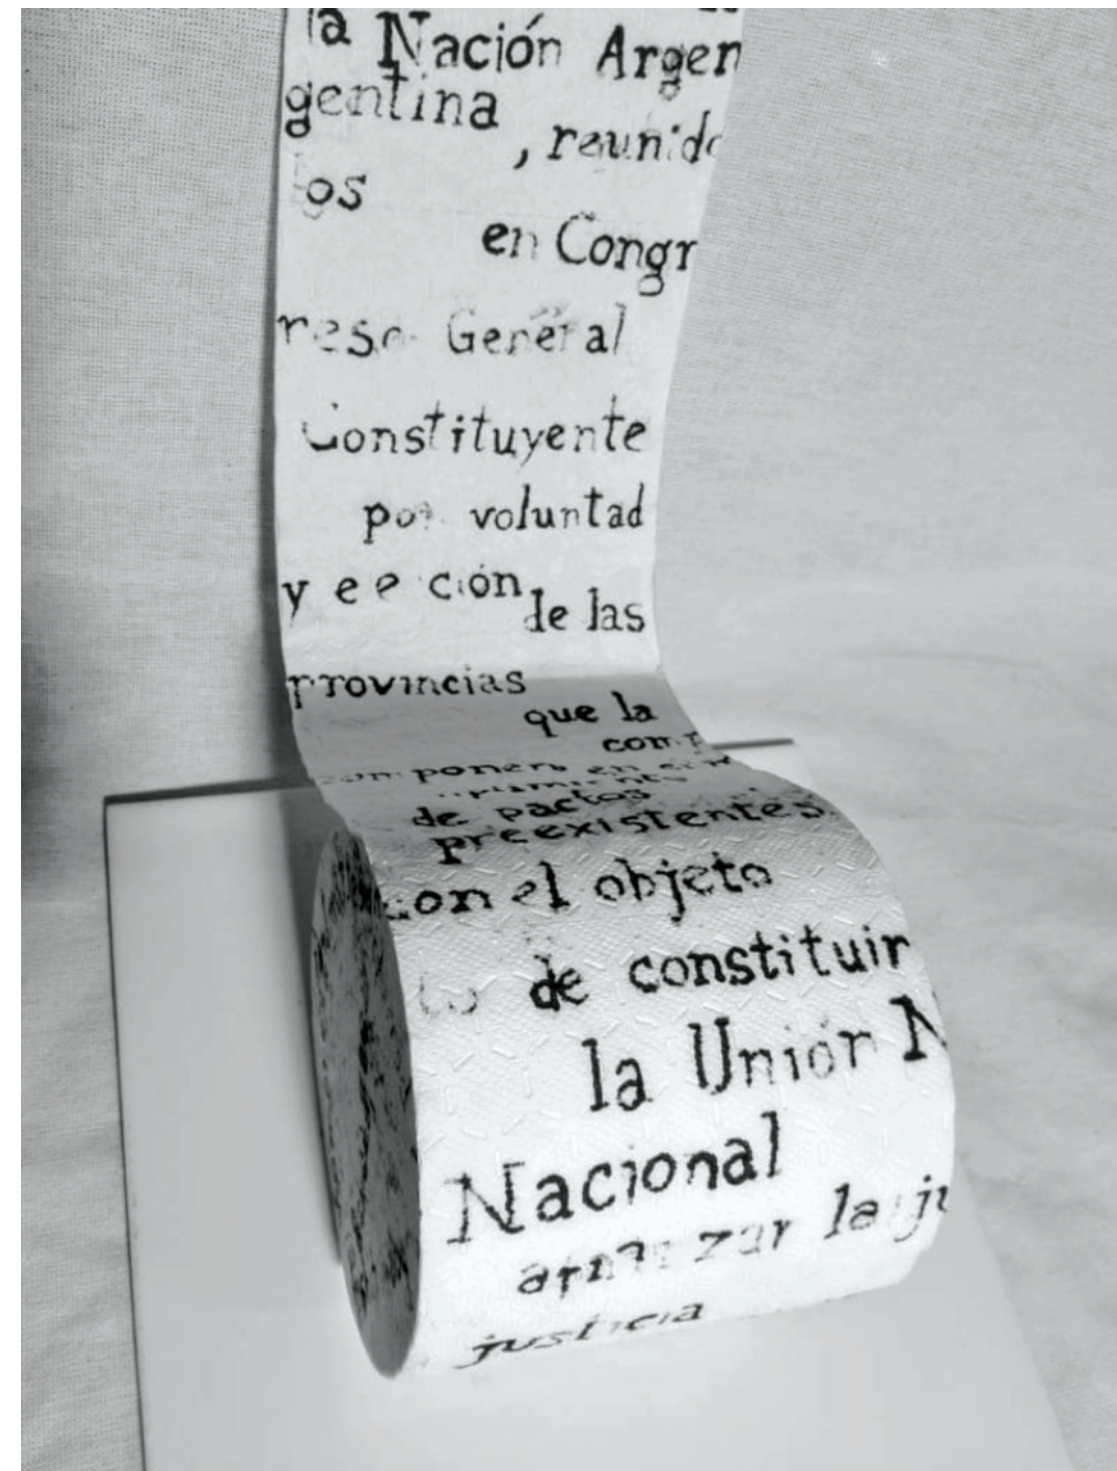 la Nación Argen
gentina
, reunido
os
en Congr
reso General
Constituyente
por voluntad
y ee ción
de las
provincias
que la
comp
componen en
de pactos
preexistentes
con el objeto
to de constituir
la Unión N
Nacional
zar la ju
justicia